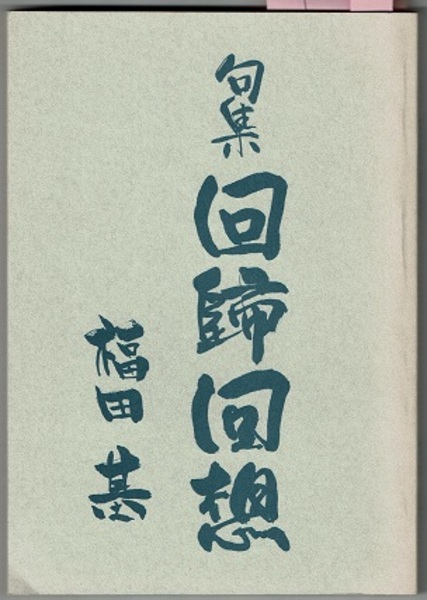 句集
回歸回想
福田基